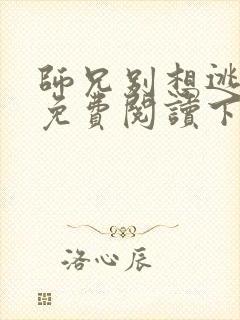 師兄別想逃
免費閱讀下
洛心辰